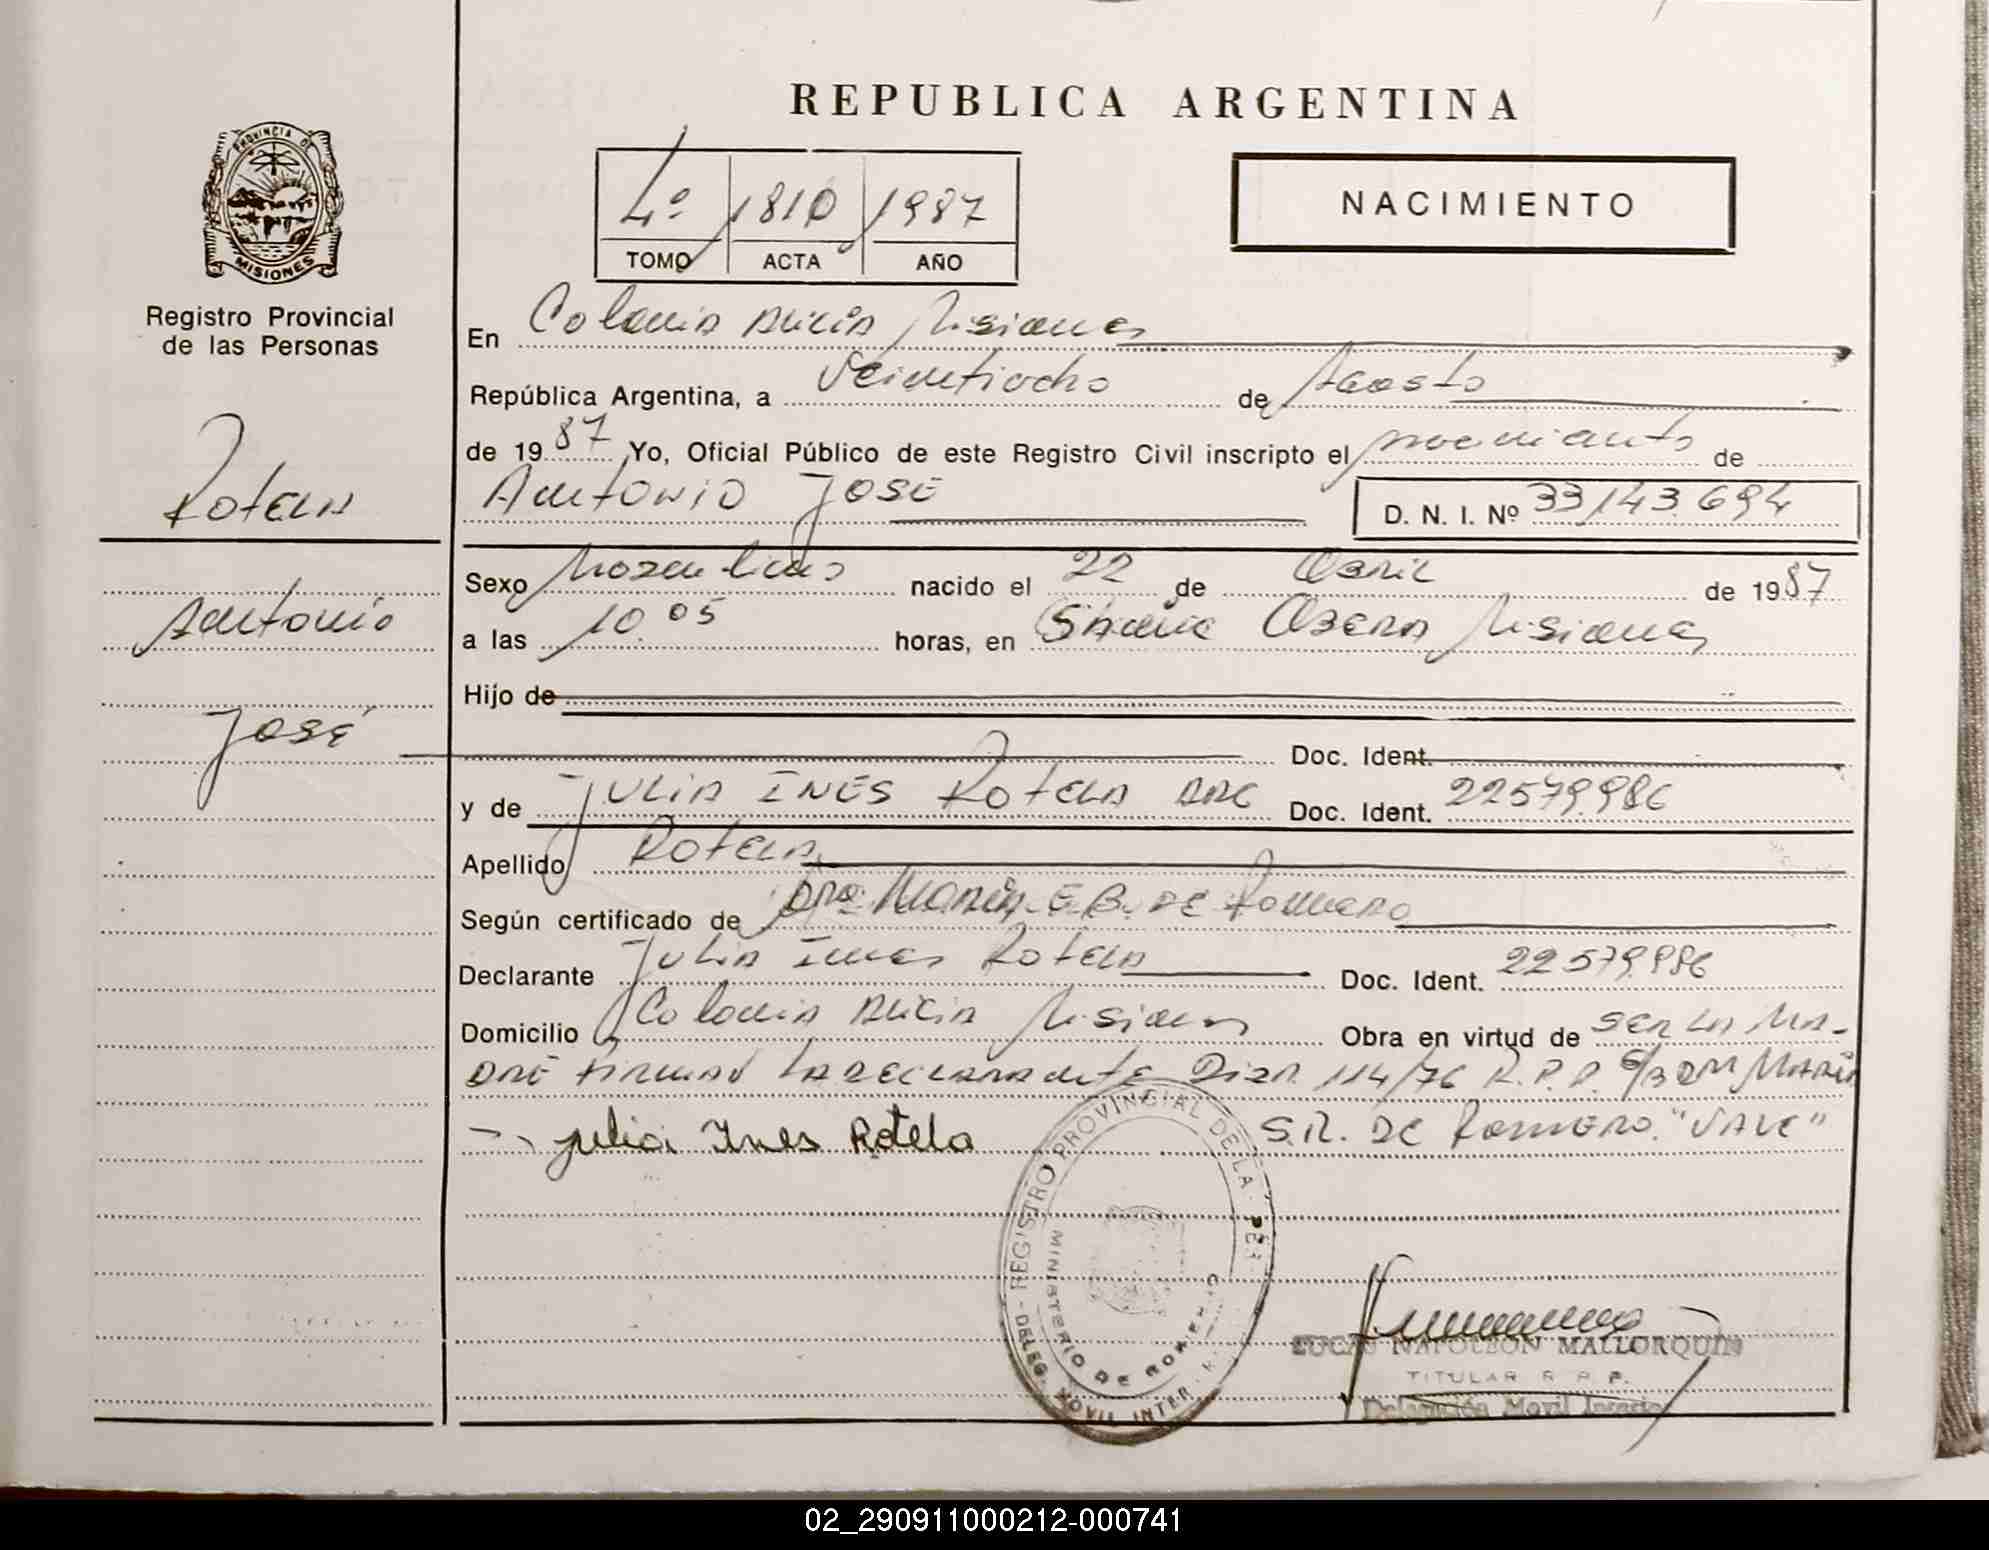 REPUBLICA ARGENTINA
4º 1810 1987
TOMO ACTA AÑO
NACIMIENTO
PROVINCIA DE
MISIONES
Registro Provincial
de las Personas
Rotela
Antonio
José
En Colonia Alicia Misiones
República Argentina, a Veintiocho de Agosto
de 1987 Yo, Oficial Público de este Registro Civil inscripto el nacimiento de
Antonio José D. N. I. Nº 33.143.694
Sexo Masculino nacido el 22 de Abril de 1987
a las 10.05 horas, en Oberá Misiones
Hijo de
Doc. Ident.
y de Julia Inés Rotela Arg Doc. Ident. 22.579.986
Apellido Rotela
Según certificado de Dra. María E.B. de Romero
Declarante Julia Ines Rotela Doc. Ident. 22.579.986
Domicilio Colonia Alicia Misiones Obra en virtud de ser la ma-
dre firmando la declarante Disp. 114/76 R.P.P. María
S.R. de Romero. "Vale"
Julia Ines Rotela
REGISTRO PROVINCIAL DE LA PER
MINISTERIO DE GOBIERNO
DELEG. MOVIL INTER.
LUCAS NAPOLEON MALLORQUIN
TITULAR R. P. P.
Delegación Movil
02_290911000212-000741